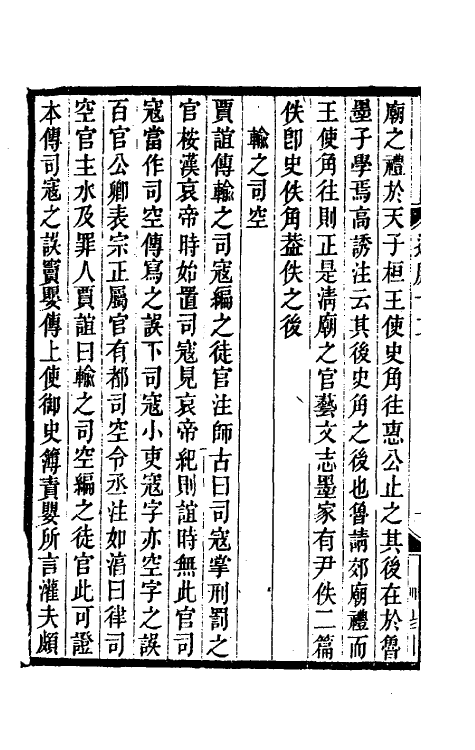 廟之禮於天子桓王使史角往惠公止之其後在於魯
墨子學焉高誘注云其後史角之後也魯請郊廟禮而
王使角往則正是淸廟之官藝文志墨家有尹佚二篇
佚卽史佚角葢佚之後
輸之司空
賈誼傳輸之司寇編之徒官注師古曰司寇掌刑罰之
官桉漢哀帝時始置司寇見哀帝紀則誼時無此官司
寇當作司空傳寫之誤下司寇小吏寇字亦空字之誤
百官公卿表宗正屬官有都司空令丞注如淯曰律司
空官主水及罪人賈誼曰輸之司空編之徒官此可證
本傳司寇之誤竇嬰傳上使御史簿責嬰所言灌夫頗